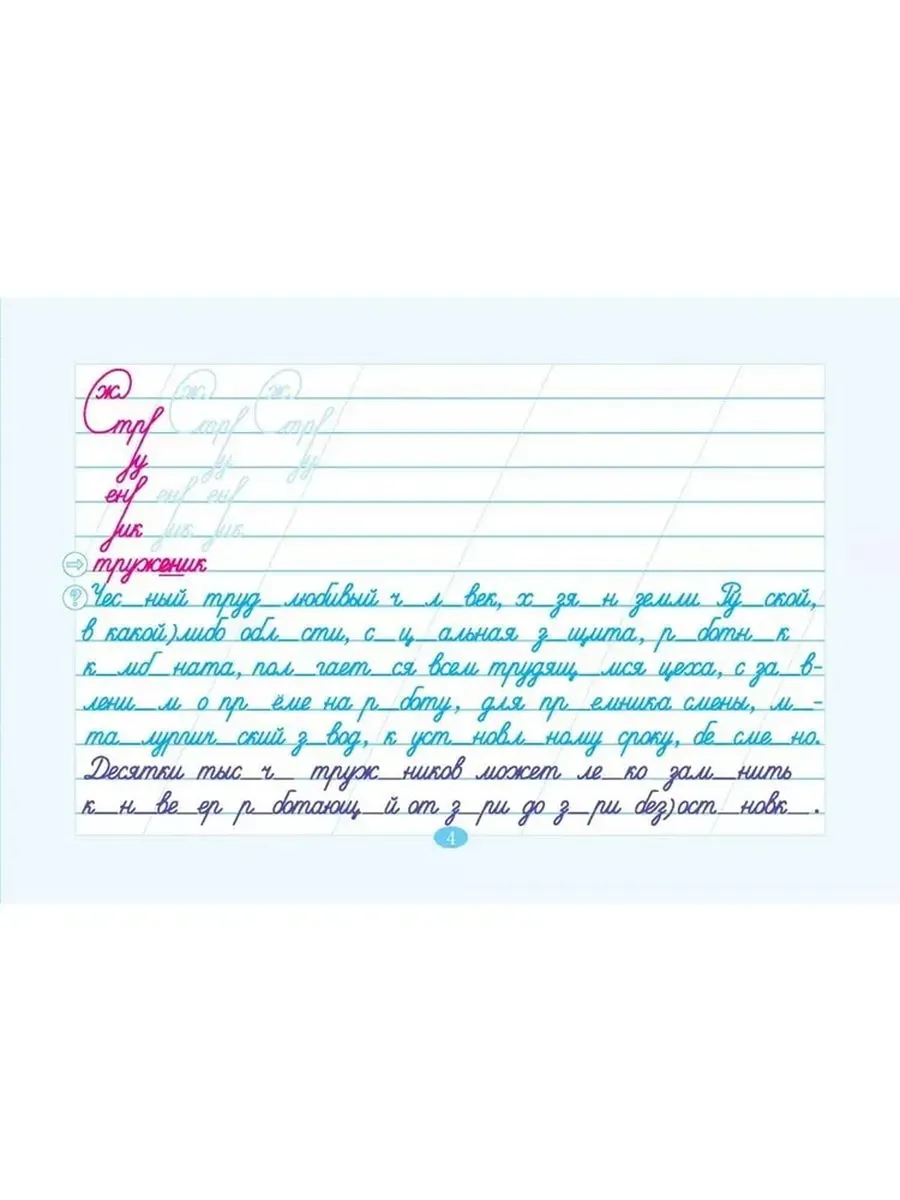 ж ж ж
тр тр тр
у у у
ен ен ен
ик ик ик
труженик
Чес_ный труд_любивый ч_л_век, х_зя_н земли Ру_ской,
в какой)либо обл_сти, с_ц_альная з_щита, р_ботн_к
к_мб_ната, пол_гает_ся всем трудящ_мся цеха, с за_в-
лени_м о пр_ёме на р_боту, для пр_емника смены, м_-
та_лургич_ский з_вод, к уст_новл_ному сроку, бе_сме_но.
Десятки тыс_ч_ труж_ников может ле_ко зам_нить
к_н_ве_ер р_ботающ_й от з_ри до з_ри без)ост_новк_.
4